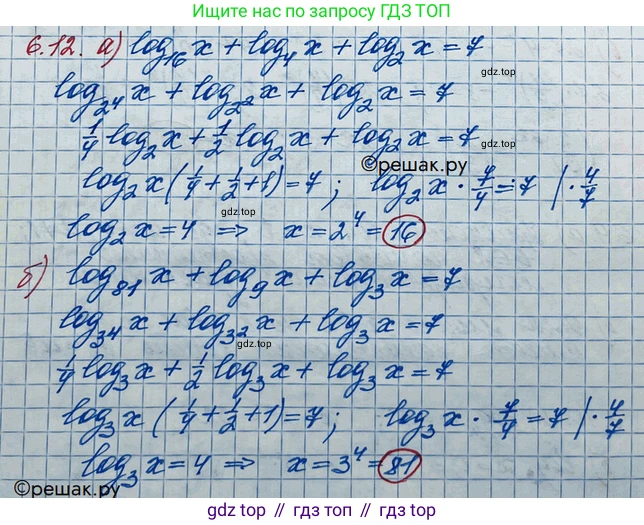 Больше решебников по запросу ГДЗ ТОП
6.12. а) log₁₆x + log₄x + log₂x = 7
gdz.top
log_{2⁴}x + log_{2²}x + log₂x = 7
gdz.top
1/4 log₂x + 1/2 log₂x + log₂x = 7
©решак.ру
log₂x(1/4 + 1/2 + 1) = 7; log₂x · 7/4 = 7 | · 4/7
gdz.top
log₂x = 4 => x = 2⁴ = 16
б) log₈₁x + log₉x + log₃x = 7
log_{3⁴}x + log_{3²}x + log₃x = 7
gdz.top
1/4 log₃x + 1/2 log₃x + log₃x = 7
log₃x (1/4 + 1/2 + 1) = 7; log₃x · 7/4 = 7 | · 4/7
log₃x = 4 => x = 3⁴ = 81
gdz.top
©решак.ру
gdz top // gdz top // gdz top